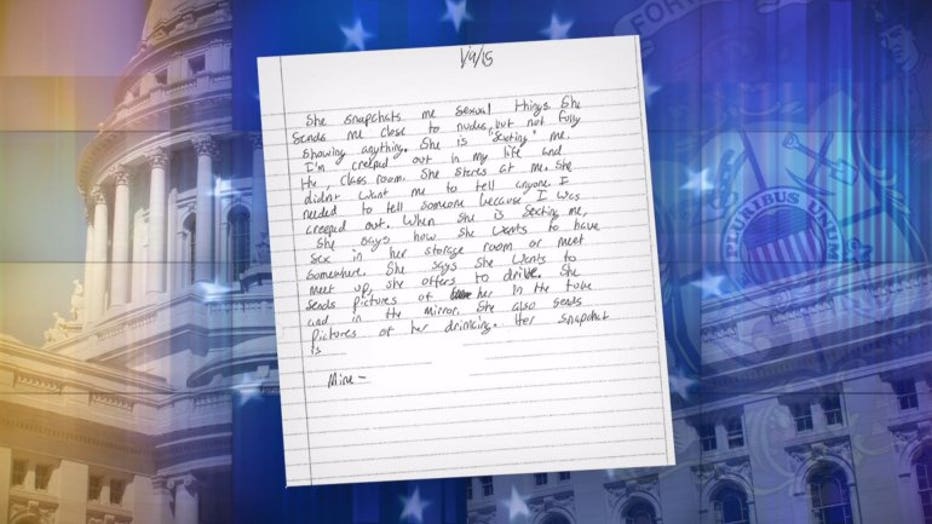 1/9/15
She snapchats me sexual things. She
sends me close to nudes, but not fully
showing anything. She is "sexting" me.
I'm creeped out in my life and
the, class room. She stares at me. She
didnt want me to tell anyone. I
needed to tell someone because I was
creeped out. When she is sexting me,
She says how she wants to have
sex in her storage room or meet
somewhere. She says she wants to
meet up, she offers to drive. She
sends pictures of her in the
and in the mirror. She also sends
pictures of her drinking. Her snapchat
is
Mine -
FORW
PLURIBUS UNUM